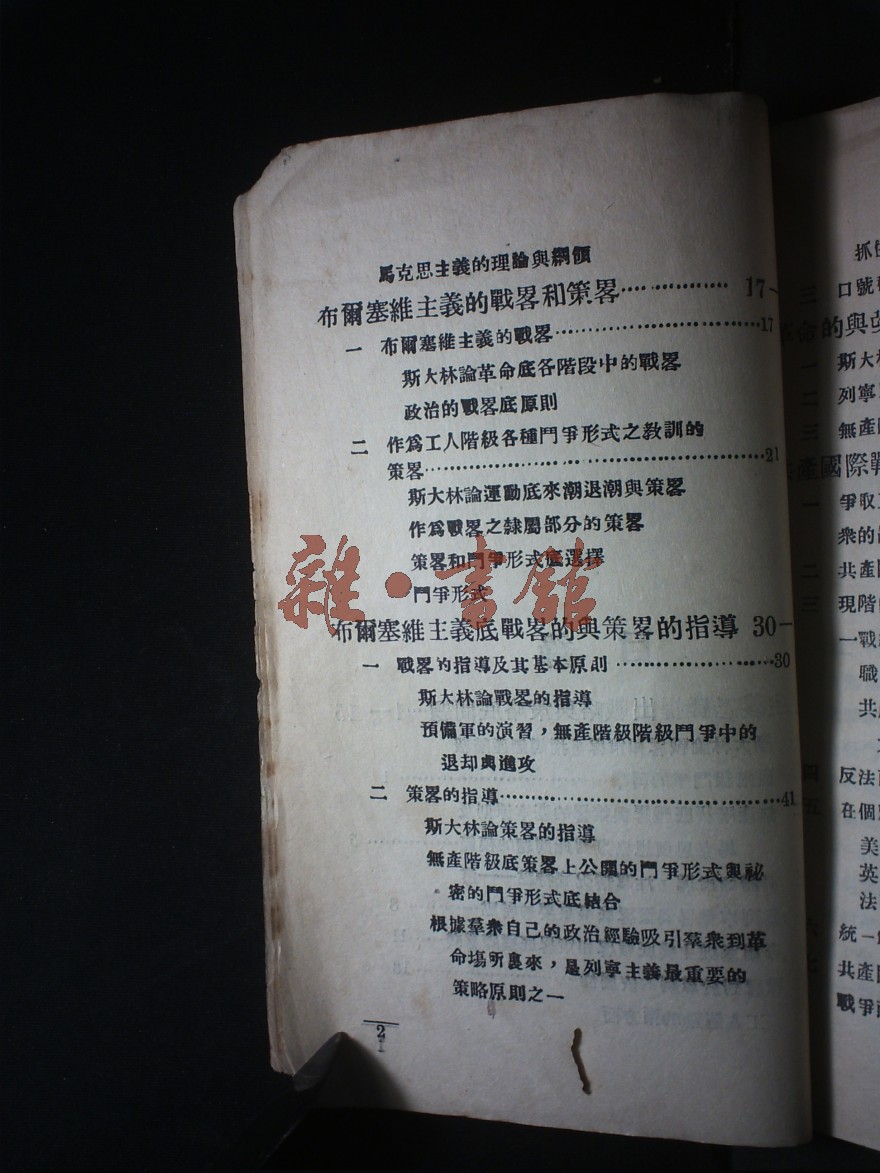 馬克思主義的理論與綱領
布爾塞維主義的戰畧和策畧…………… 17-
一 布爾塞維主義的戰畧……………………17
斯大林論革命底各階段中的戰畧
政治的戰畧底原則
二 作爲工人階級各種鬥爭形式之教訓的
策畧……………………………………21
斯大林論運動底來潮退潮與策畧
作爲戰畧之隸屬部分的策畧
策畧和鬥爭形式底選擇
鬥爭形式
布爾塞維主義底戰畧的與策畧的指導 30-
一 戰畧的指導及其基本原則………………30
斯大林論戰畧的指導
預備軍的演習，無產階級階級鬥爭中的
退却與進攻
二 策畧的指導………………………………41
斯大林論策畧的指導
無產階級底策畧上公開的鬥爭形式與祕
密的鬥爭形式底結合
根據羣衆自己的政治經驗吸引羣衆到革
命塲所裏來，是列寧主義最重要的
策略原則之一
2
1
雜·書館
三 口號
革命的與
一 斯大林
二 列寧
三 無產
共產國際戰
一 爭取
衆的
二 共產
三 現階
一戰
職
共
四 反法
五 在個
美
英
法
統一
共產
戰爭